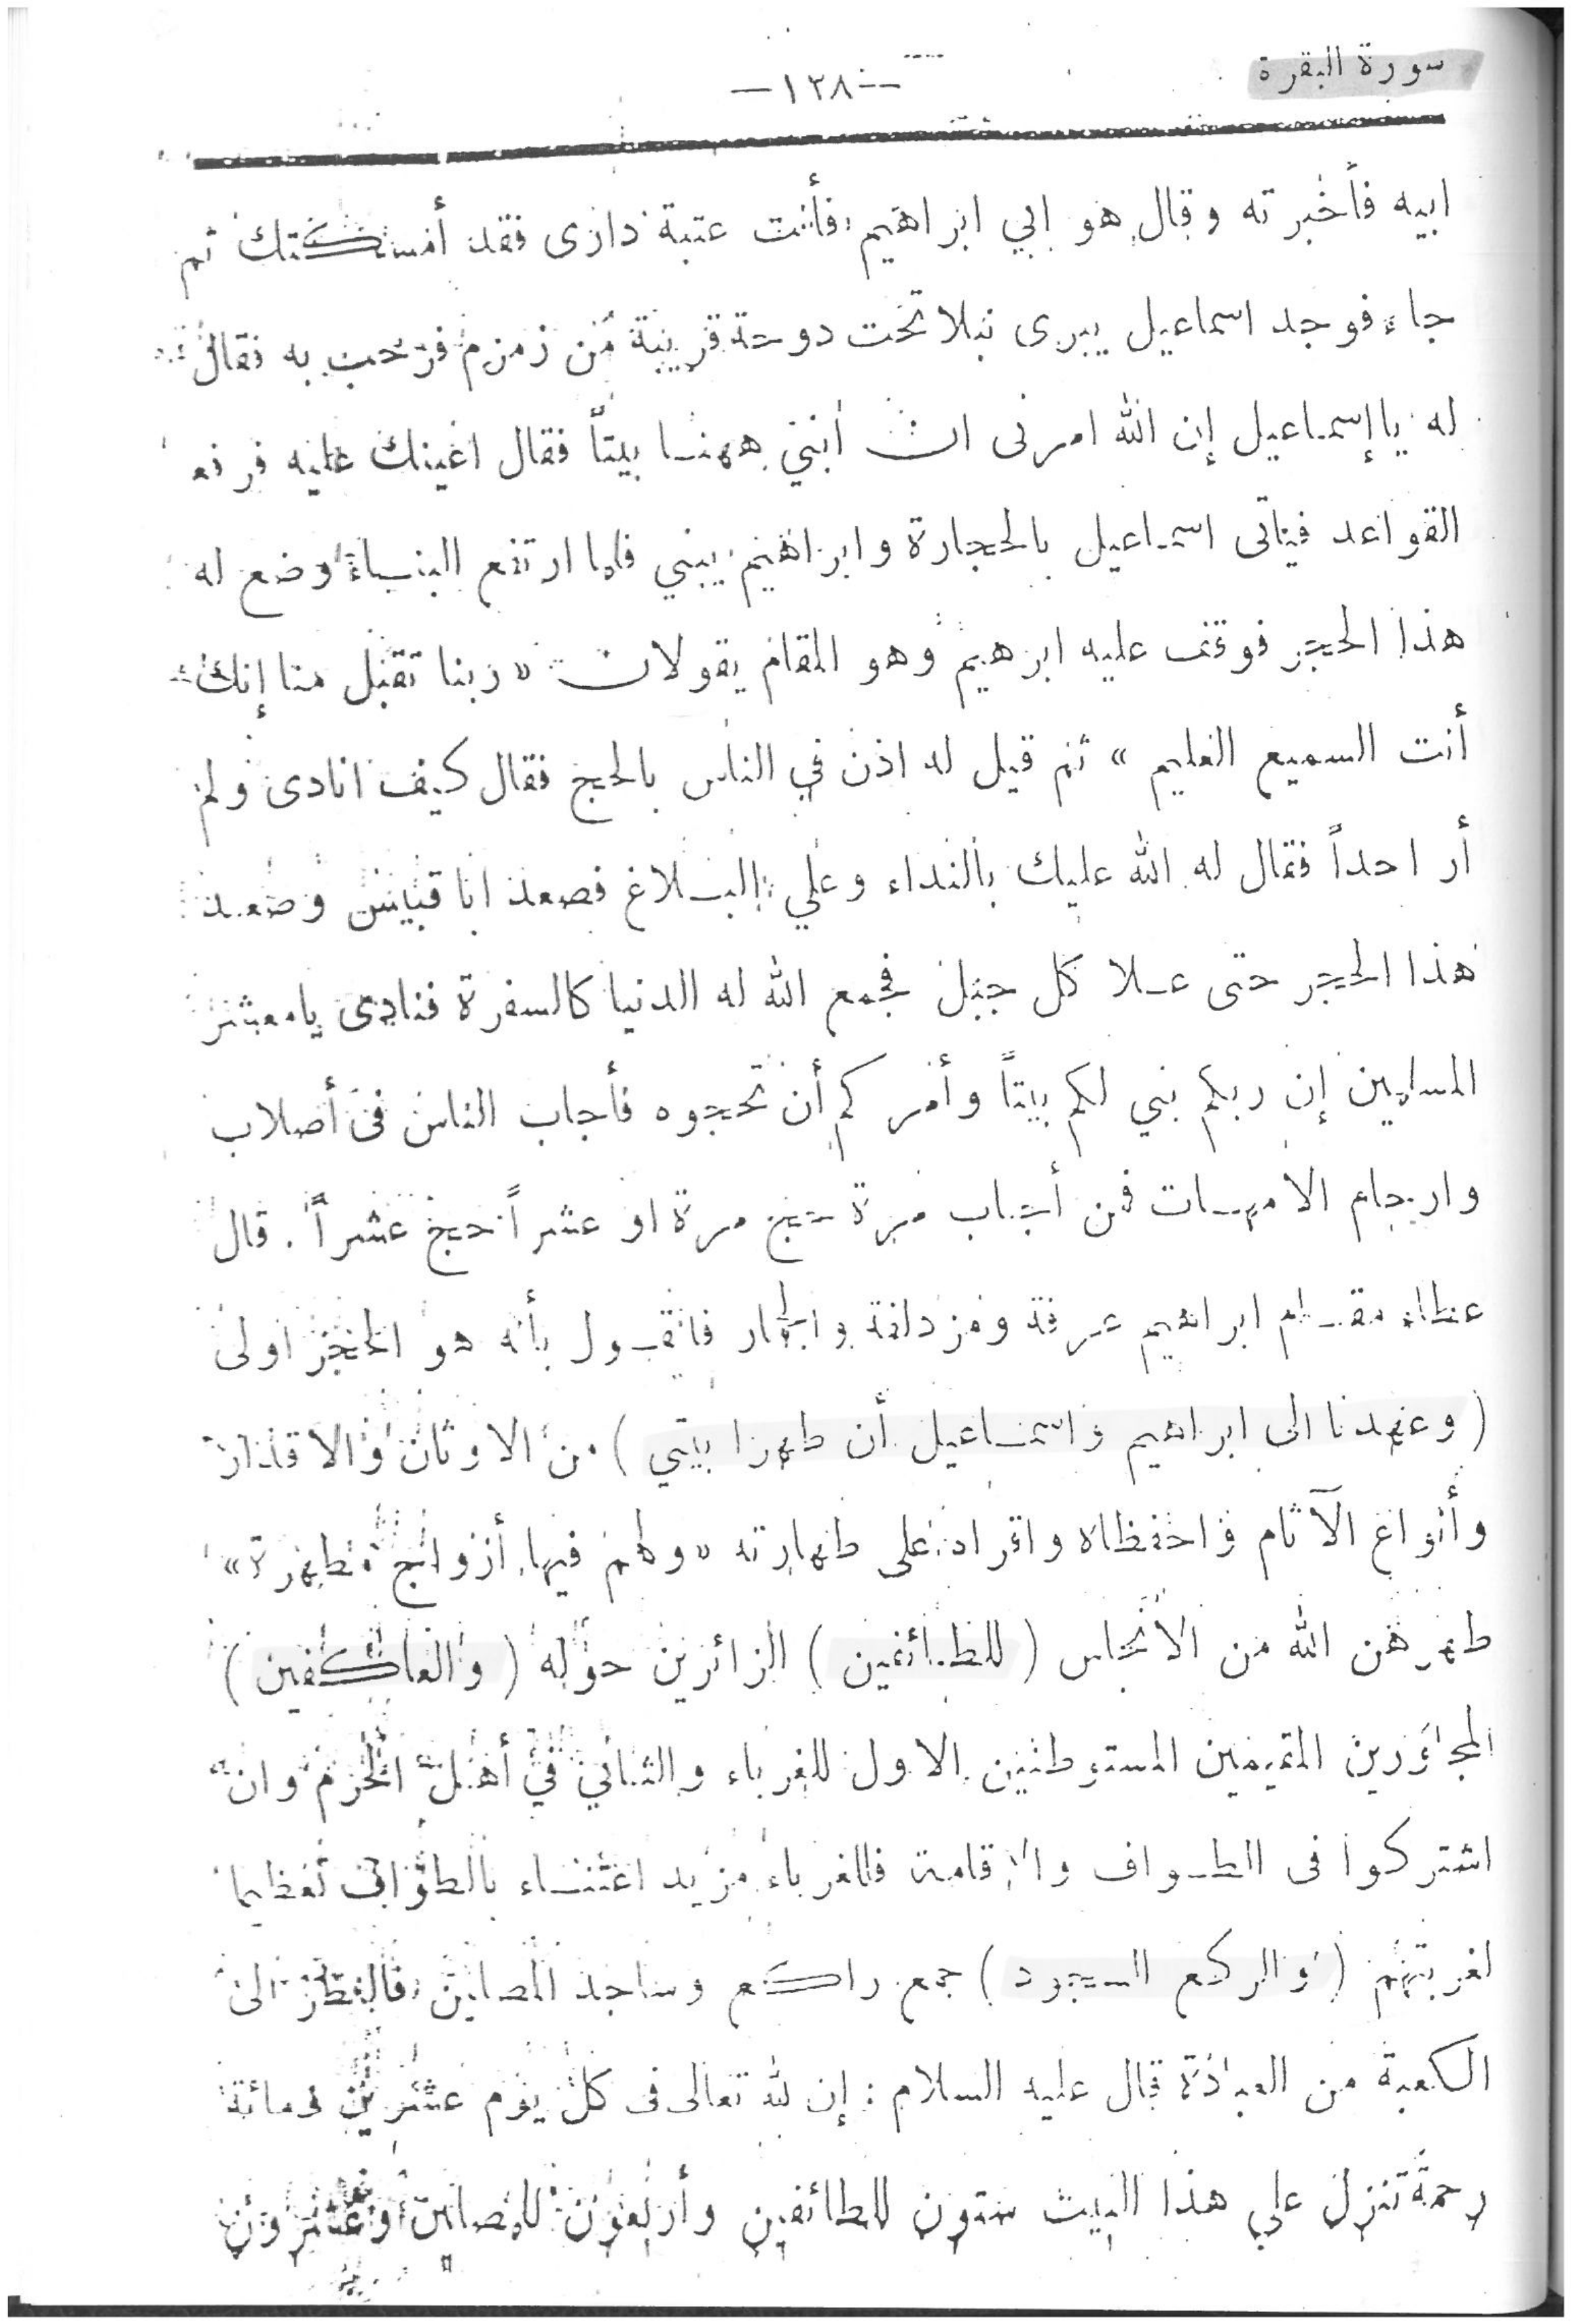 سورة البقرة
—١٣٨—
ابيه فأخبرته وقال هو ابي ابراهيم فأنت عتبة دارى فقد أمسكتك ثم
جاء فوجد اسماعيل يبرى نبلا تحت دوحة قريبة من زمزم فرحب به فقال
له يا إسماعيل إن الله امرنى ان أبني ههنا بيتاً فقال اعينك عليه فرفع
القواعد فيأتى اسماعيل بالحجارة وابراهيم يبني فلما ارتفع البناء وضع له
هذا الحجر فوقف عليه ابرهيم وهو المقام يقولان «ربنا تقبل منا إنك
أنت السميع العليم» ثم قيل له اذن في الناس بالحج فقال كيف انادى ولم
أر احداً فقال له الله عليك بالنداء وعلي البلاغ فصعد ابا قبيس وصعد
هذا الحجر حتى علا كل جبل فجمع الله له الدنيا كالسفرة فنادى يا معشر
المسلمين إن ربكم بني لكم بيتاً وأمركم أن تحجوه فأجاب الناس فى أصلاب
وارحام الامهات فمن أجاب مرة حج مرة او عشراً حج عشراً. قال
عطاء مقام ابراهيم عرفة ومزدلفة والجمار فالقول بأنه هو الحجر اولى
(وعهدنا الى ابراهيم واسماعيل أن طهرا بيتي) من الاوثان والاقذار
وأنواع الآثام واحفظاه على طهارته «ولهم فيها أزواج مطهرة»
طهرهن الله من الأنجاس (للطائفين) الزائرين حوله (والعاكفين)
المجاورين المقيمين المستوطنين الاول للغرباء والثاني في أهل الحرم وان
اشتركوا فى الطواف والاقامة فللغرباء مزيد اعتناء بالطواف تعظيما
لغربتهم (والركع السجود) جمع راكع وساجد المصلين فالنظر الى
الكعبة من العبادة قال عليه السلام: إن لله تعالى فى كل يوم عشرين ومائة
رحمة تنزل علي هذا البيت ستون للطائفين وأربعون للمصلين وعشرون